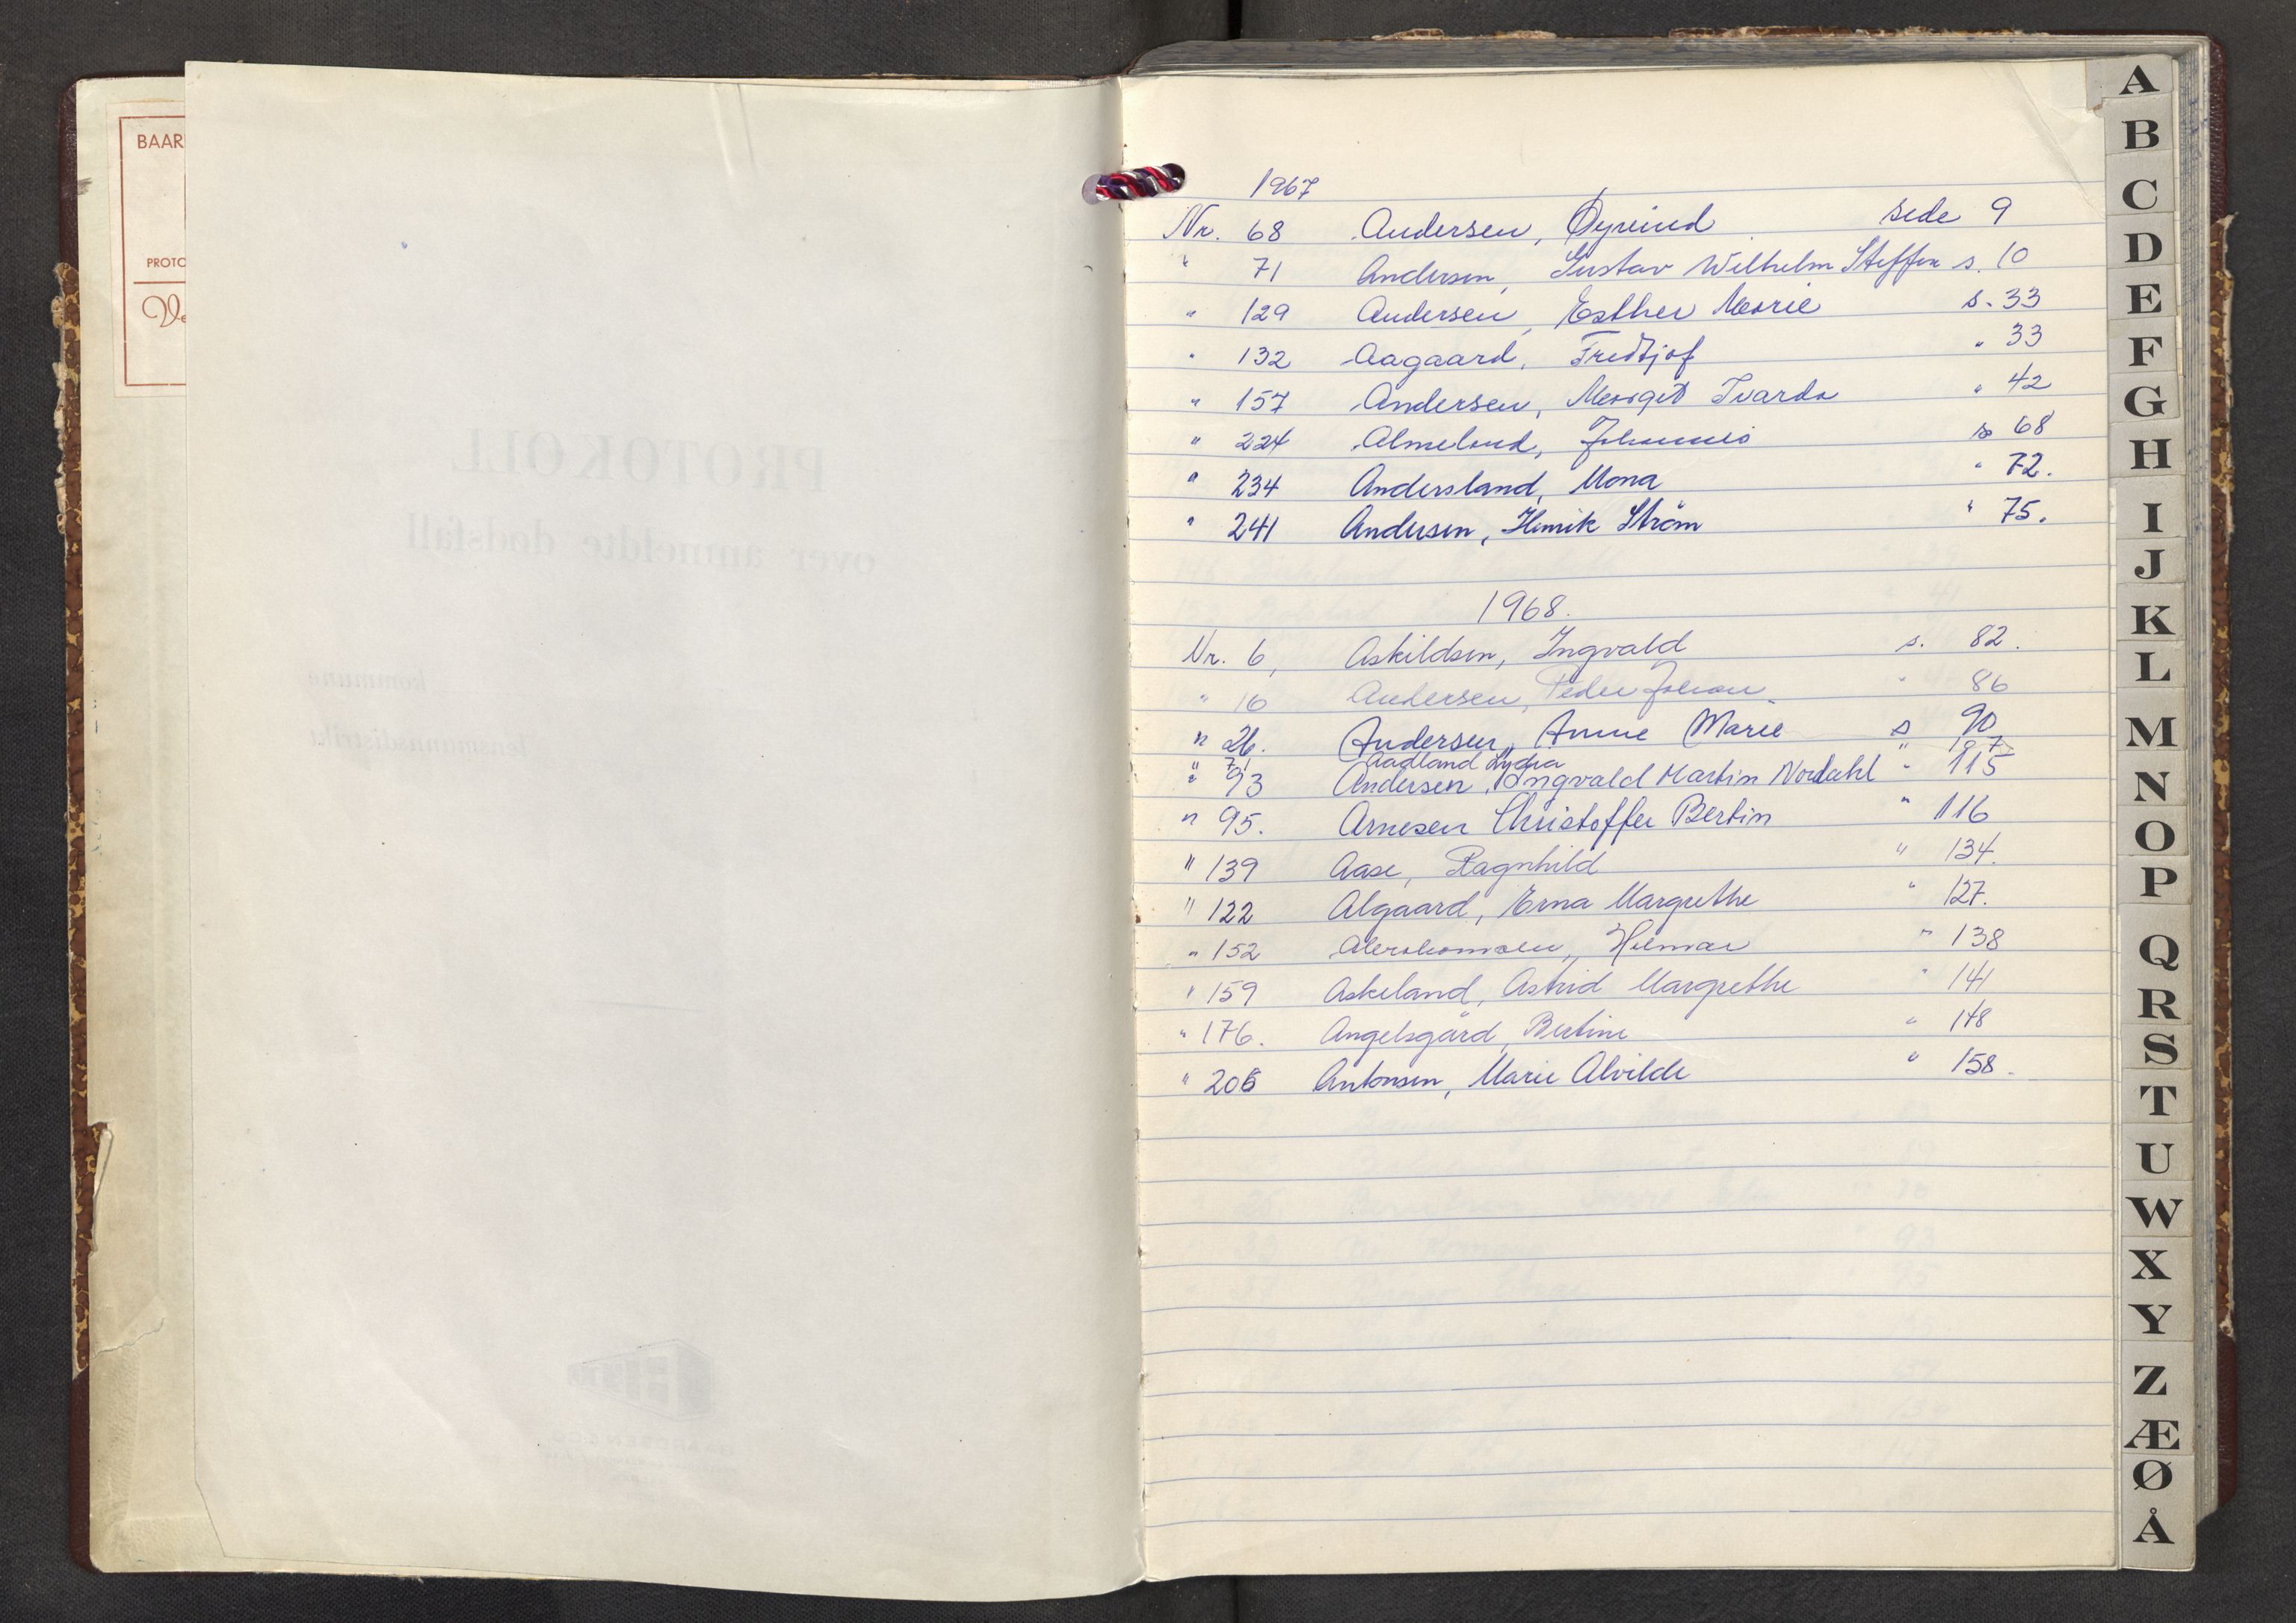 BAAR
PROTO
PROTOKOLL
over anmeldte dødsfall
kommune
lensmannsdistrikt
1967
Nr. 68 Andersen, Øyvind side 9
" 71 Andersen, Gustav Wilhelm Steffen s. 10
" 129 Andersen, Esther Marie s. 33
" 132 Aagaard, Fredtjof " 33
" 157 Andersen, Margit Ivarda " 42
" 224 Almeland, Johannes s 68
" 234 Andersland, Mona " 72.
" 241 Andersen, Henrik Strøm " 75.
1968.
Nr. 6, Askildsen, Ingvald s. 82.
" 16 Andersen, Peder Johan " 86
" 26. Andersen, Anne Marie s 90
" 71 Aadland Lydia " 107
" 93 Andersen, Ingvald Martin Nordahl " 115
" 95. Arnesen Christoffer Bertin " 116
" 139 Aase, Ragnhild " 134.
" 122 Algaard, Erna Margrethe " 127.
" 152 Hilmar " 138
" 159 Askeland, Astrid Margrethe " 141
" 176. Angelsgård, Bertine " 148
" 206 Antonsen, Marie Alvilde " 158.
A
B
C
D
E
F
G
H
I
J
K
L
M
N
O
P
Q
R
S
T
U
W
X
Y
Z
Æ
Ø
Å